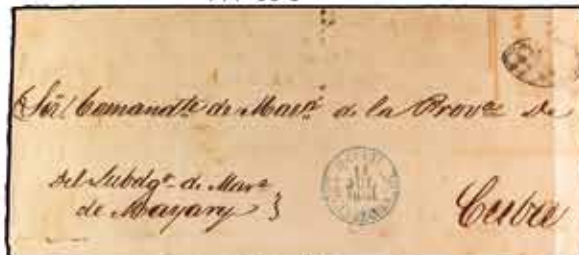 Sōr Comandte de Mara de la Prova de
Del Subdgo de Mara
de Mayary }
Cuba